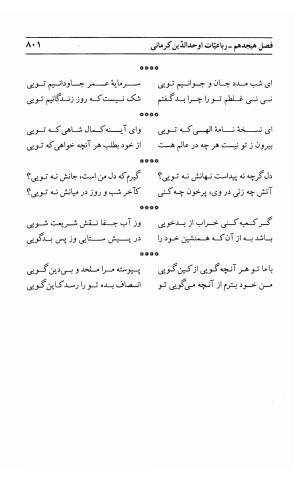 فصل هیجدهم ـ رباعیّات اوحدالدّین کرمانی ۸۰۱
****
ای شب مدد جان و جوانیم تویی سرمایهٔ عمر جاودانیم تویی
نی نی غلطم تو را چرا بد گفتم شک نیست که روز زندگانیم تویی
****
ای نسخهٔ نامهٔ الهی که تویی وای آینه کمال شاهی که تویی
بیرون ز تو نیست هر چه در عالم هست از خود بطلب هر آنچه خواهی که تویی
****
دل گرچه نه پیداست نهانش نه تویی؟ گیرم که دل من است، جانش نه تویی؟
آتش چه زنی در وی، پرخون چه کنی کآخر شب و روز در میانش نه تویی؟
****
گر کعبه کنی خراب از بدخویی وز آب جفا نقش شریعت شویی
باشد به از آن که همنشین خود را در پیش ستایی وز پس بدگویی
****
با ما تو هر آنچه گویی از کین گویی پیوسته مرا ملحد و بی‌دین گویی
من خود بترم از آنچه می‌گویی تو انصاف بده تو را رسد کاین گویی